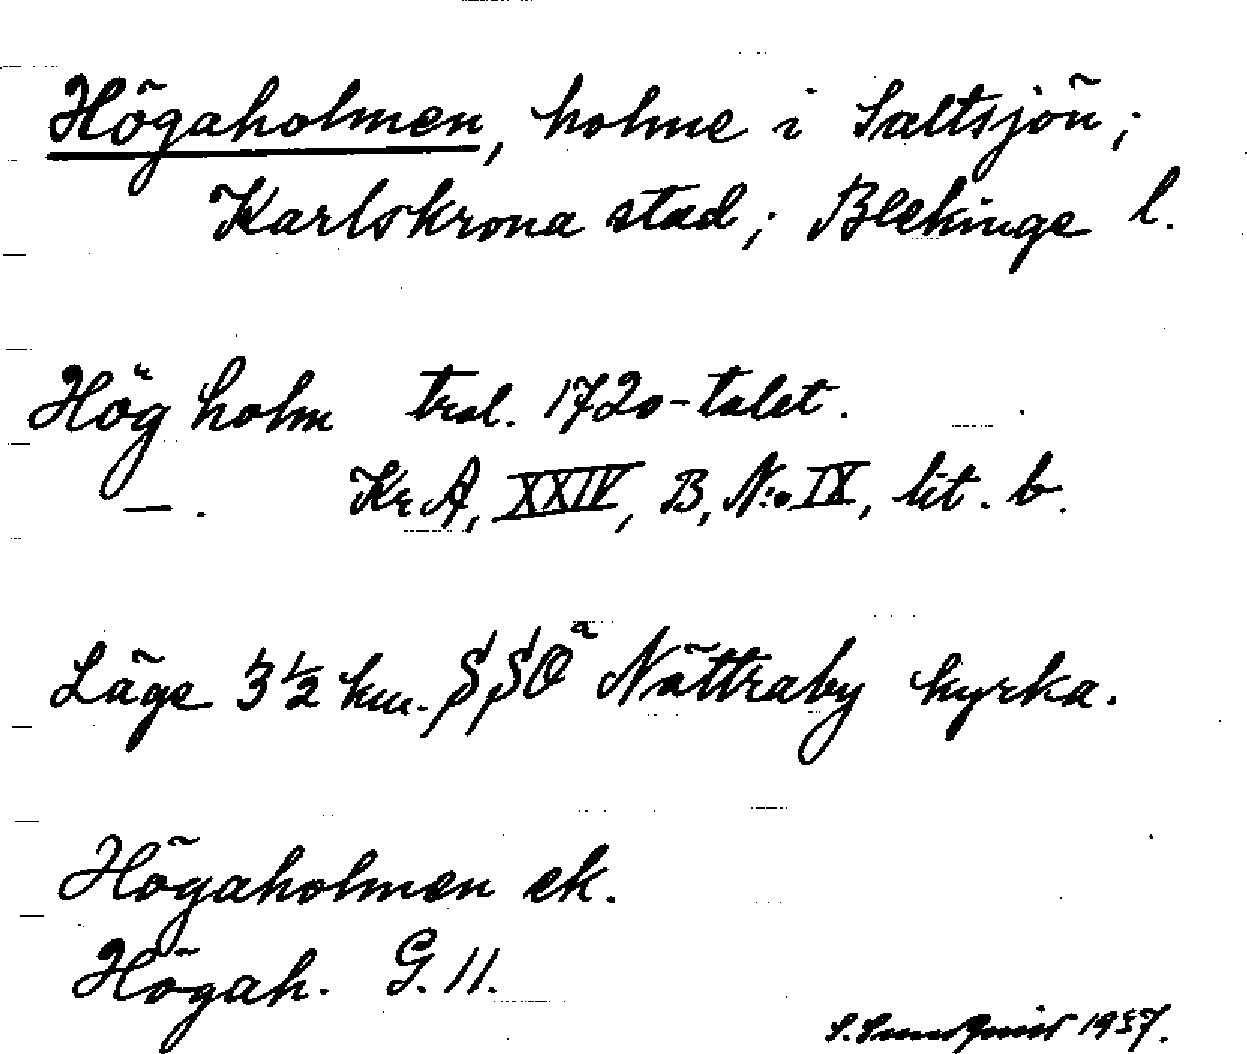 Högaholmen, holme i Saltsjön;
Karlskrona stad; Blekinge l.
Hög holm trol. 1720-talet.
— . Kr A, XXIV, B, N:o IX, lit. b.
Läge 3 ½ km. SSO Nättraby kyrka.
Högaholmen ek.
Högah. G. 11.
S. 1937.